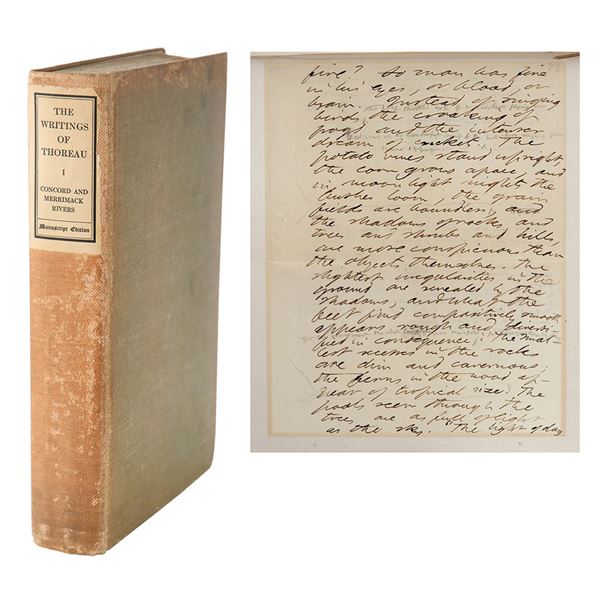 THE
WRITINGS
OF
THOREAU
I
CONCORD AND
MERRIMACK
RIVERS
Manuscript Edition
fire? So man has fire
in his eyes, or blood, or
brain. Instead of singing
birds, the croaking of
frogs and the intenser
dream of crickets. The
potato vines stand upright
the corn grows apace, and
in moon light nights the
bushes loom, the grain
fields are boundless, and
the shadows of rocks and
trees and shrubs and hills,
are more conspicuous than
the objects themselves. The
slightest inequalities in the
ground are revealed by the
shadows, and what the
feet find comparatively smooth
appears rough and diversi-
fied in consequence. The smal-
lest recesses in the rocks
are dim and cavernous;
the ferns in the wood ap-
pear of tropical size. The
pools seen through the
trees are as full of light
as the sky. "The light of day